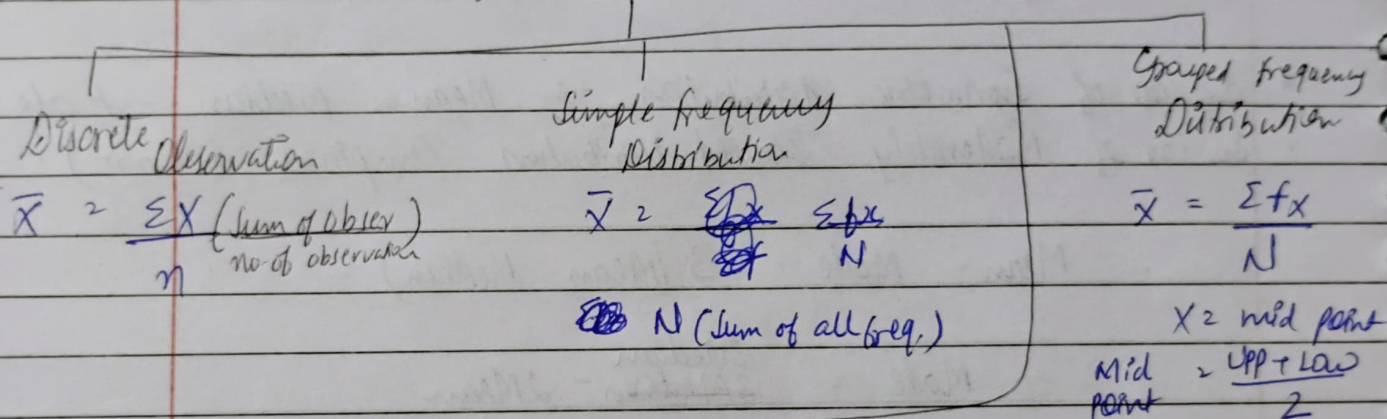 Discrete Observation
X̄ = ΣX (Sum of obser)
n no. of observation
Simple frequency
Distribution
X̄ = Σfx
N
N (Sum of all freq.)
Grouped frequency
Distribution
X̄ = Σfx
N
X = mid point
Mid point = UPP + Low
2